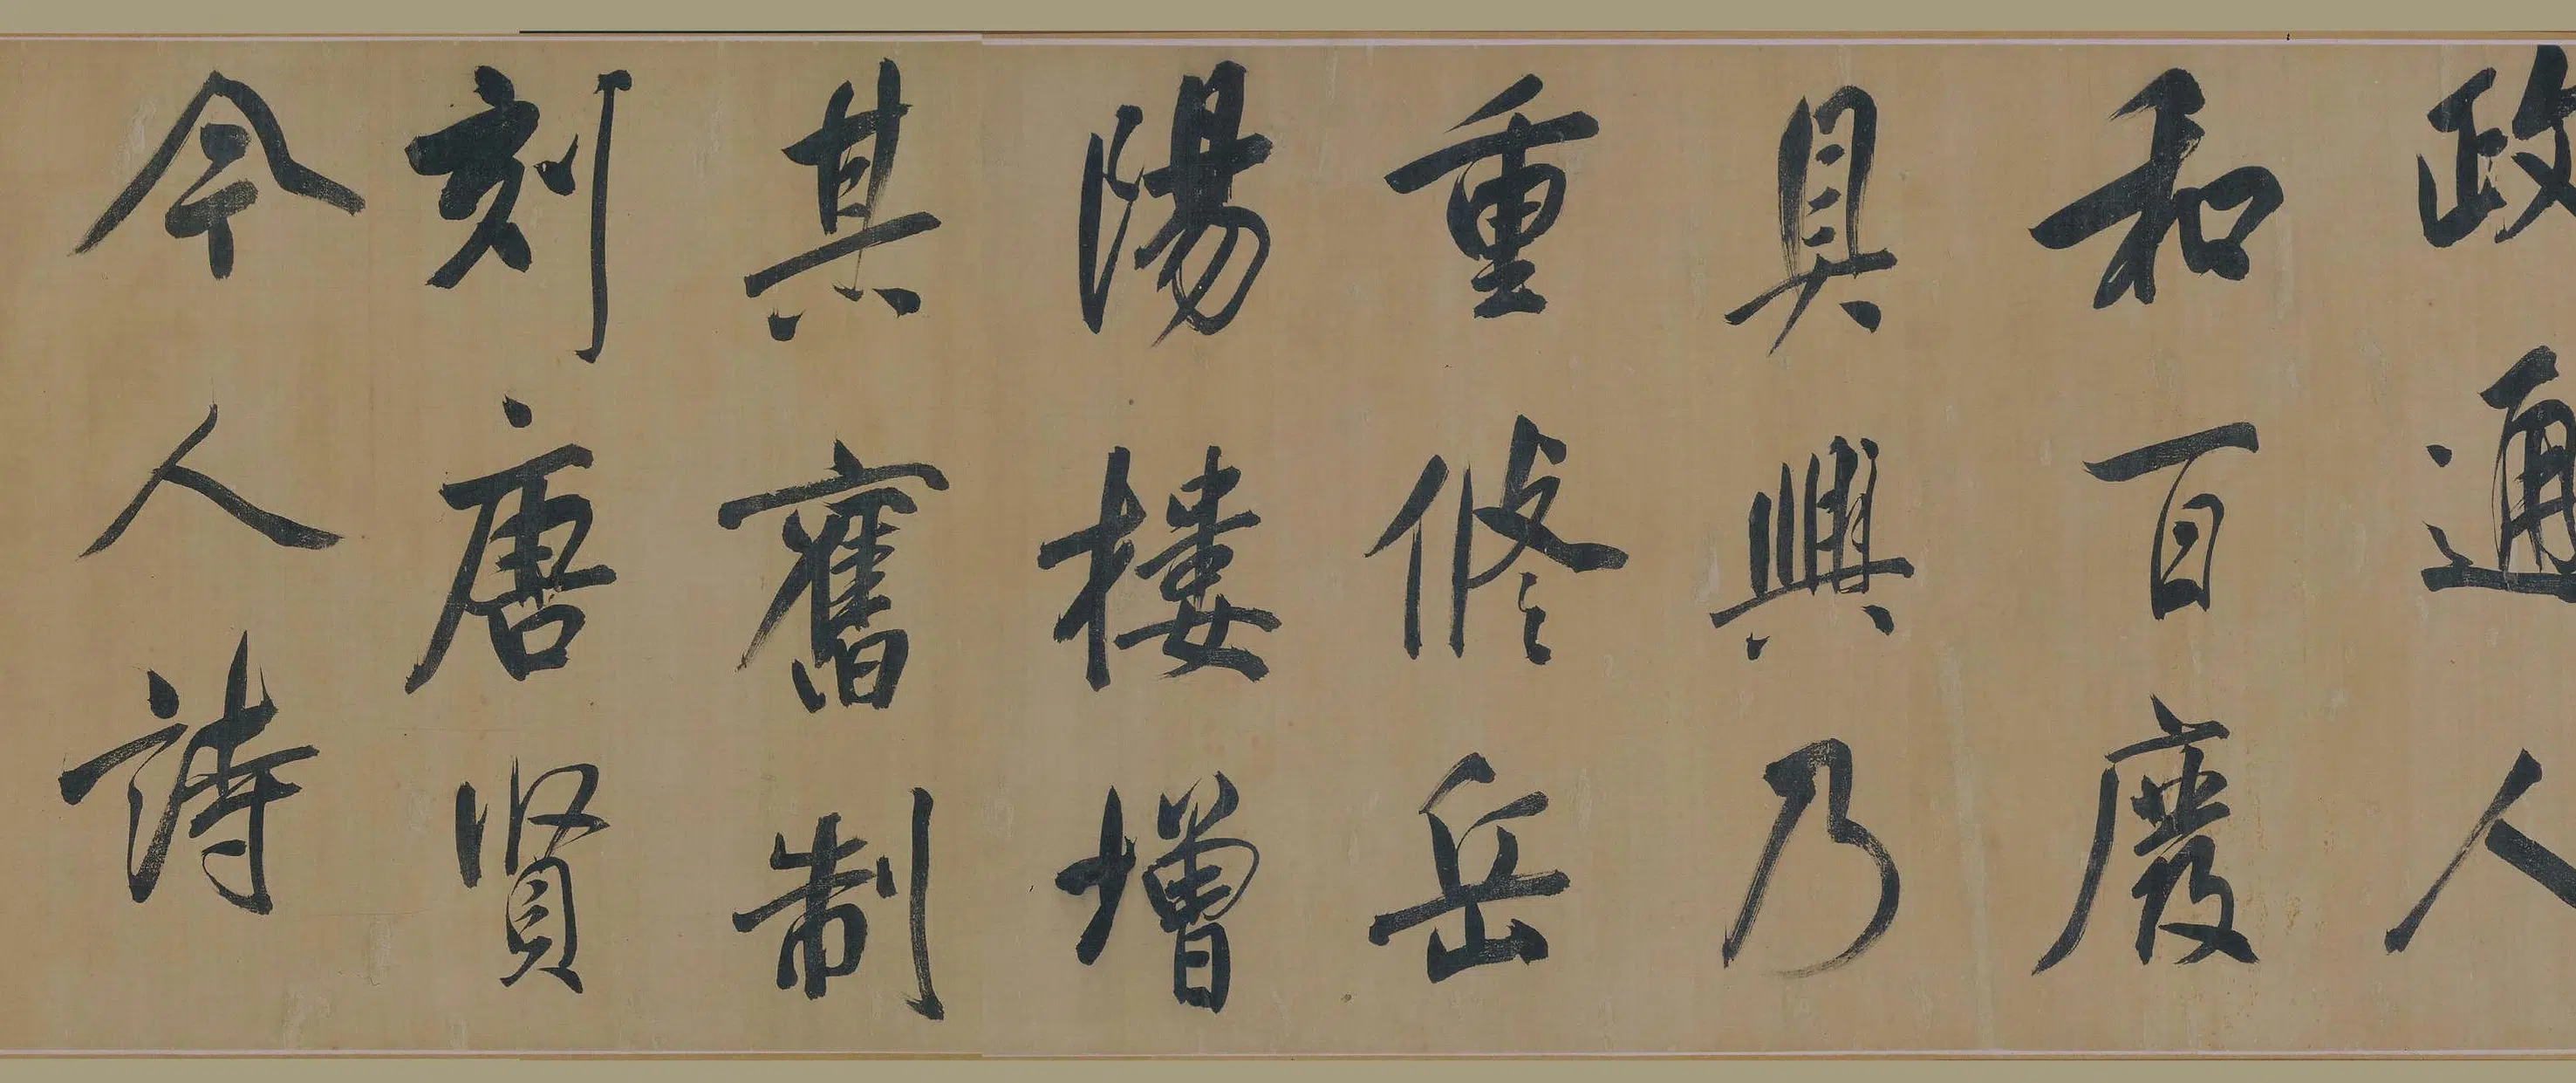 政通人
和百廢
具興乃
重脩岳
陽樓增
其舊制
刻唐賢
今人詩